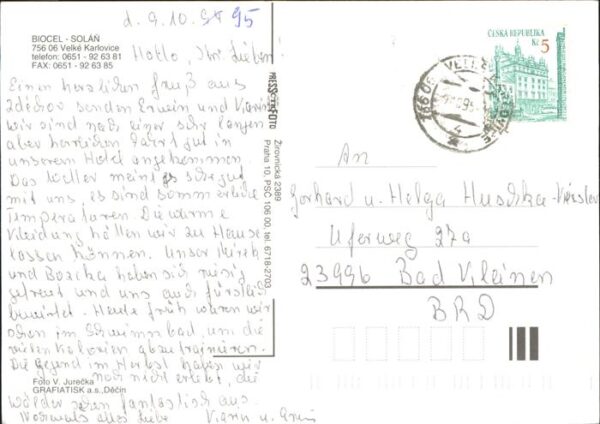 d. 9.10. 95
BIOCEL - SOLÁŇ
756 06 Velké Karlovice
telefon: 0651 - 92 63 81
FAX: 0651 - 92 63 85
Hallo, Ihr Lieben!
Einen herzlichen Gruß aus
Zděchov senden Erwin und
wir sind nach einer sehr langen
aber herrlichen Fahrt gut in
unserem Hotel angekommen
Das Wetter meint es sehr gut
mit uns, es sind sommerliche
Temperaturen. Die warme
Kleidung hätten wir zu Hause
lassen können. Unser
und Bozka haben sich riesig
gefreut und uns auch fürstlich
bewirtet. Heute früh waren wir
schon im Schwimmbad, um die
vielen Kalorien abzutrainieren.
Die Gegend im Herbst haben wir
noch nicht erlebt, die
Foto V. Jurečka
GRAFIATISK a.s., Děčín
Wälder sehen fantastisch aus.
Nochmals alles Liebe
PRESSFOTO
Žirovnická 2389
Praha 10, PSČ 106 00, tel. 6718-2703
ČESKÁ REPUBLIKA
Kč 5
756 06
An
Gerhard u. Helga
Uferweg 27a
23996 Bad Kleinen
BRD